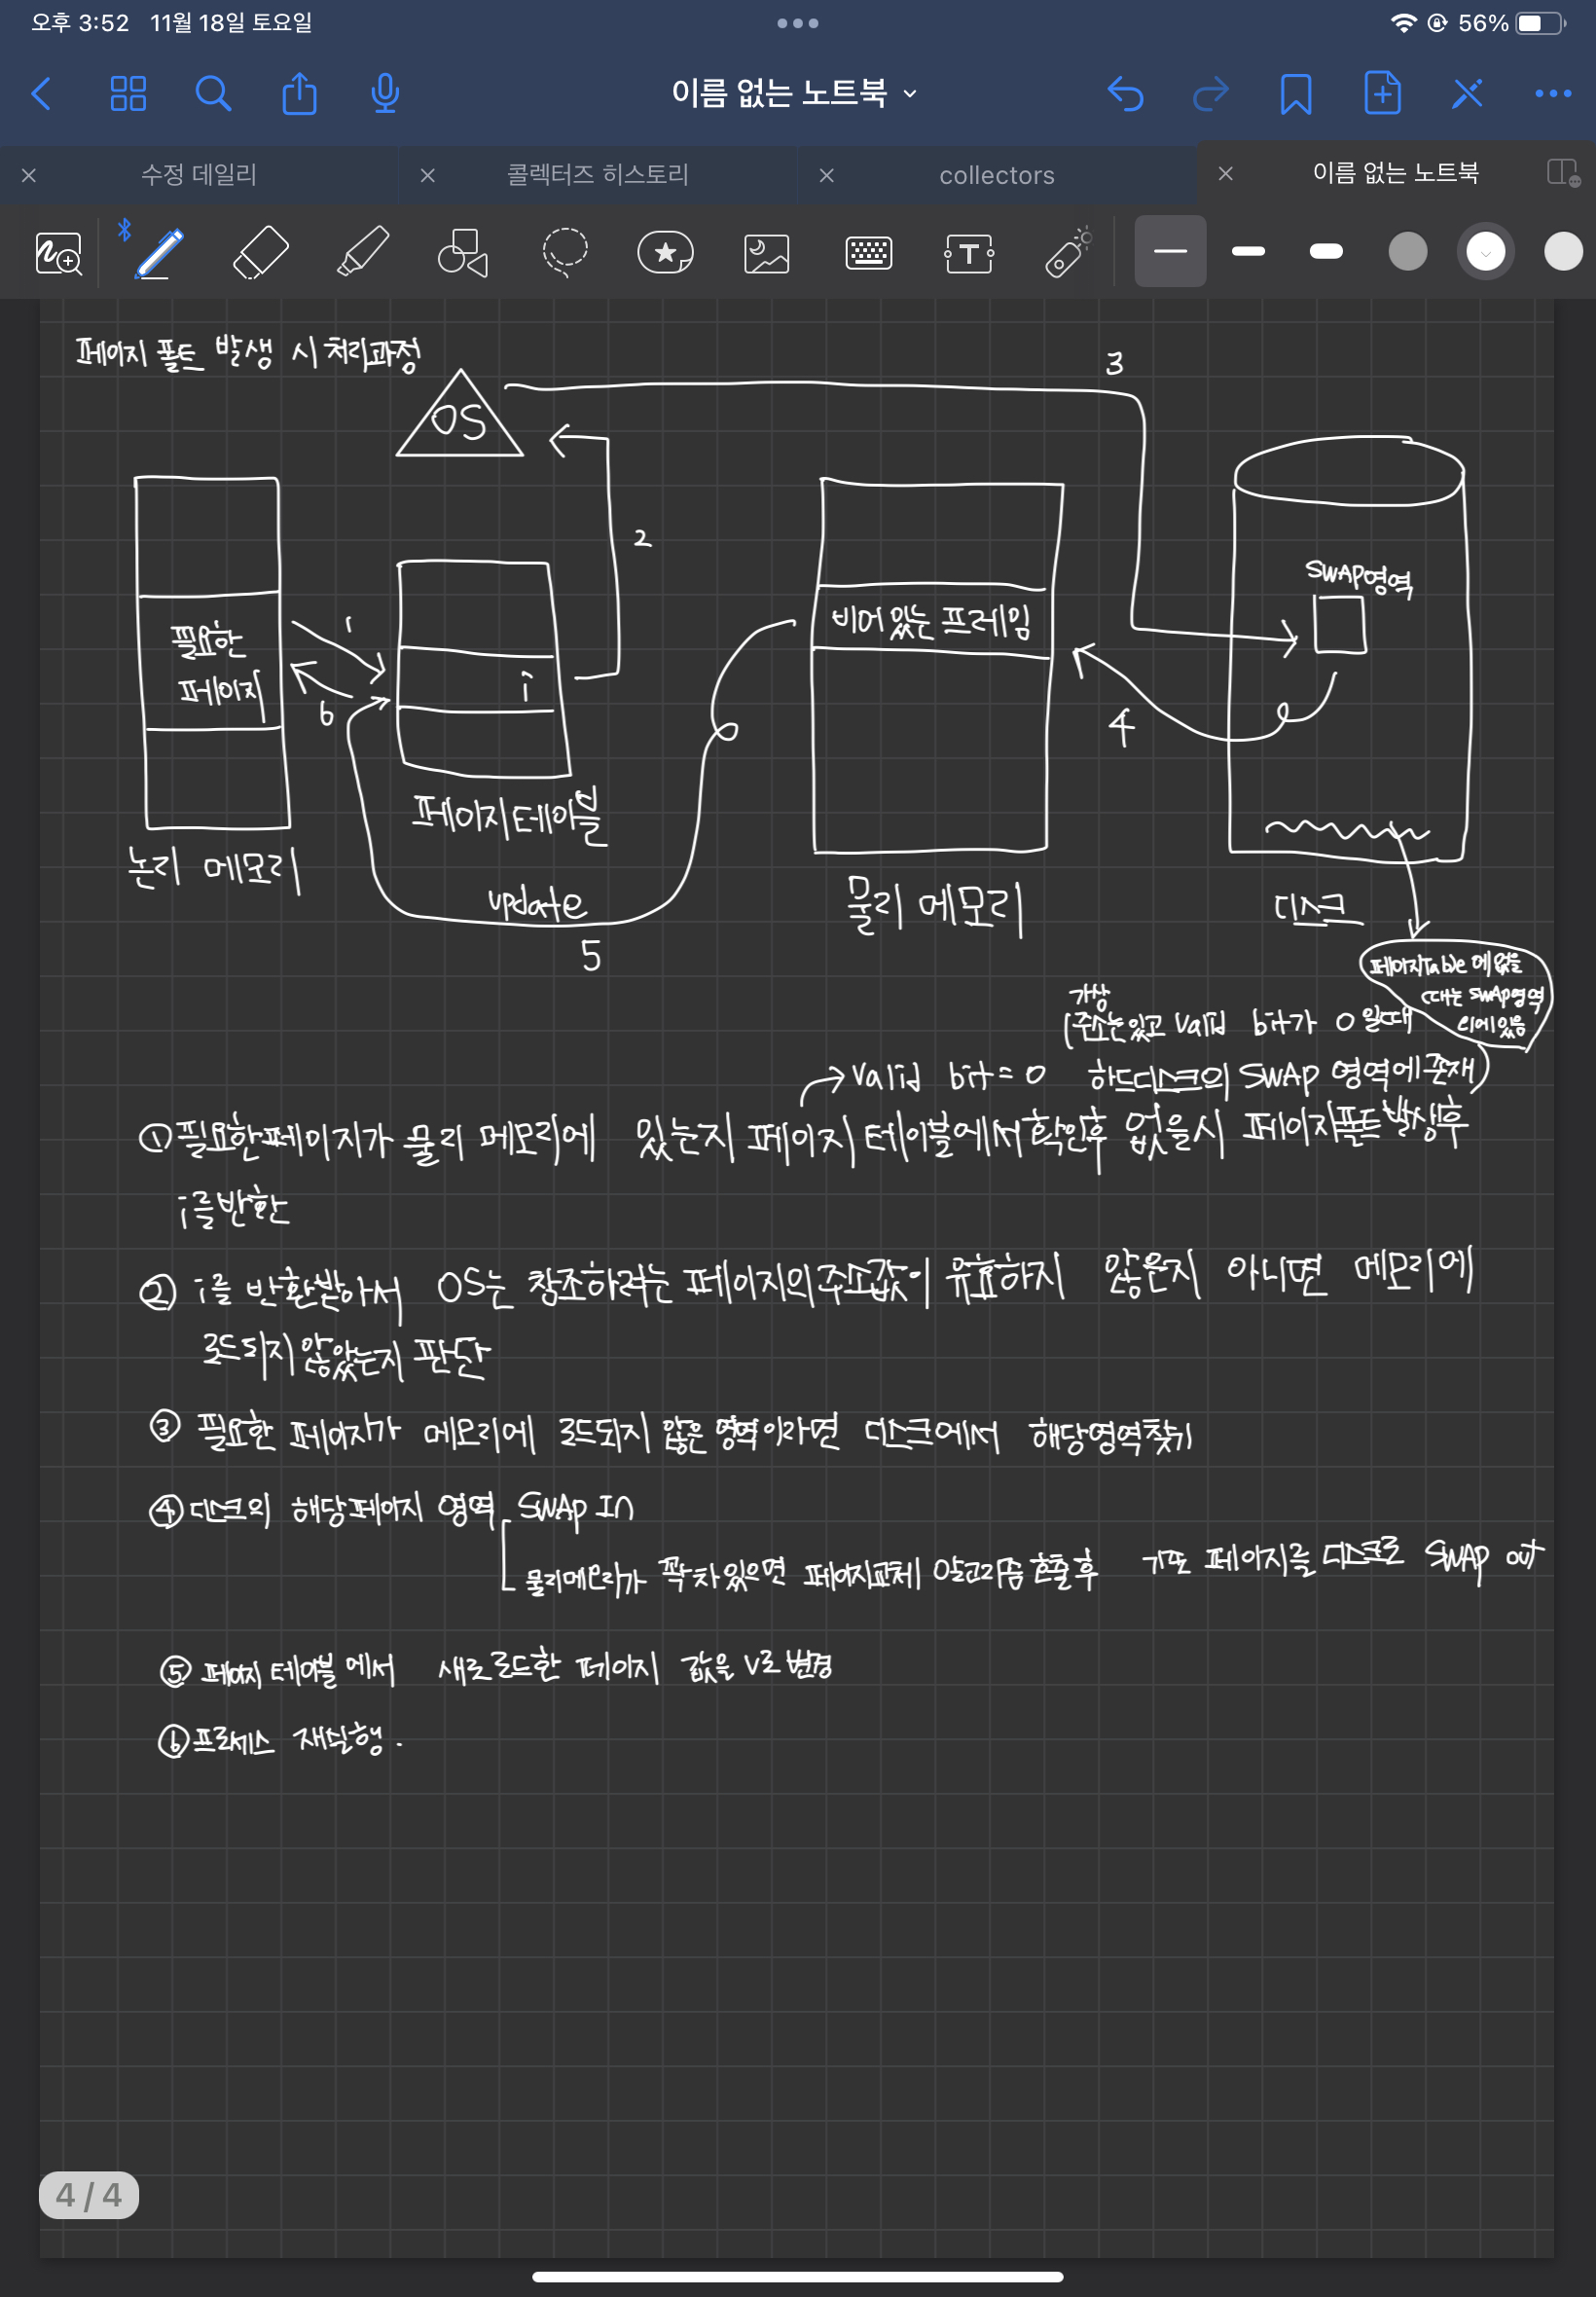 오후 3:52 11월 18일 토요일 56%
이름 없는 노트북
수정 데일리 콜렉터즈 히스토리 collectors 이름 없는 노트북
페이지 폴트 발생 시 처리과정
3
OS
2
SWAP영역
비어있는 프레임
1
필요한
페이지
i
6
4
페이지 테이블
논리 메모리
update
물리 메모리
디스크
5
페이지Table에 없을
때는 SWAP영역
에 있음
가상
(주소는있고 Valid bit가 0 일때
Valid bit = 0 하드디스크의 SWAP 영역에 존재)
① 필요한페이지가 물리 메모리에 있는지 페이지 테이블에서 확인후 없을시 페이지폴트 발생후
i를 반환
② i를 반환받아서 OS는 참조하려는 페이지의 주소값이 유효하지 않은지 아니면 메모리에
로드되지 않았는지 판단
③ 필요한 페이지가 메모리에 로드되지 않은 영역이라면 디스크에서 해당영역찾기
④ 디스크의 해당페이지 영역 SWAP IN
물리메모리가 꽉 차있으면 페이지교체 알고리즘 호출후 기존 페이지를 디스크로 SWAP out
⑤ 페이지 테이블에서 새로 로드한 페이지 값을 V로 변경
⑥ 프로세스 재실행.
4 / 4